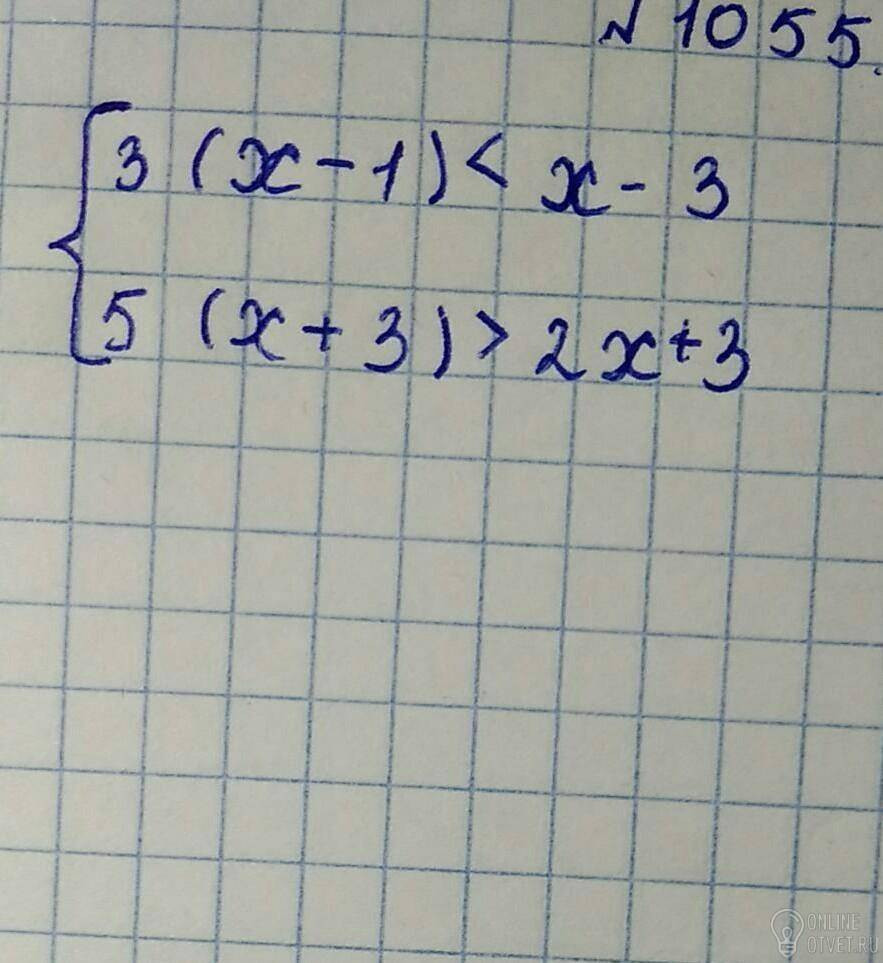 № 1055.
3 (x - 1) < x - 3
5 (x + 3) > 2x + 3
ONLINE
OTVET.RU